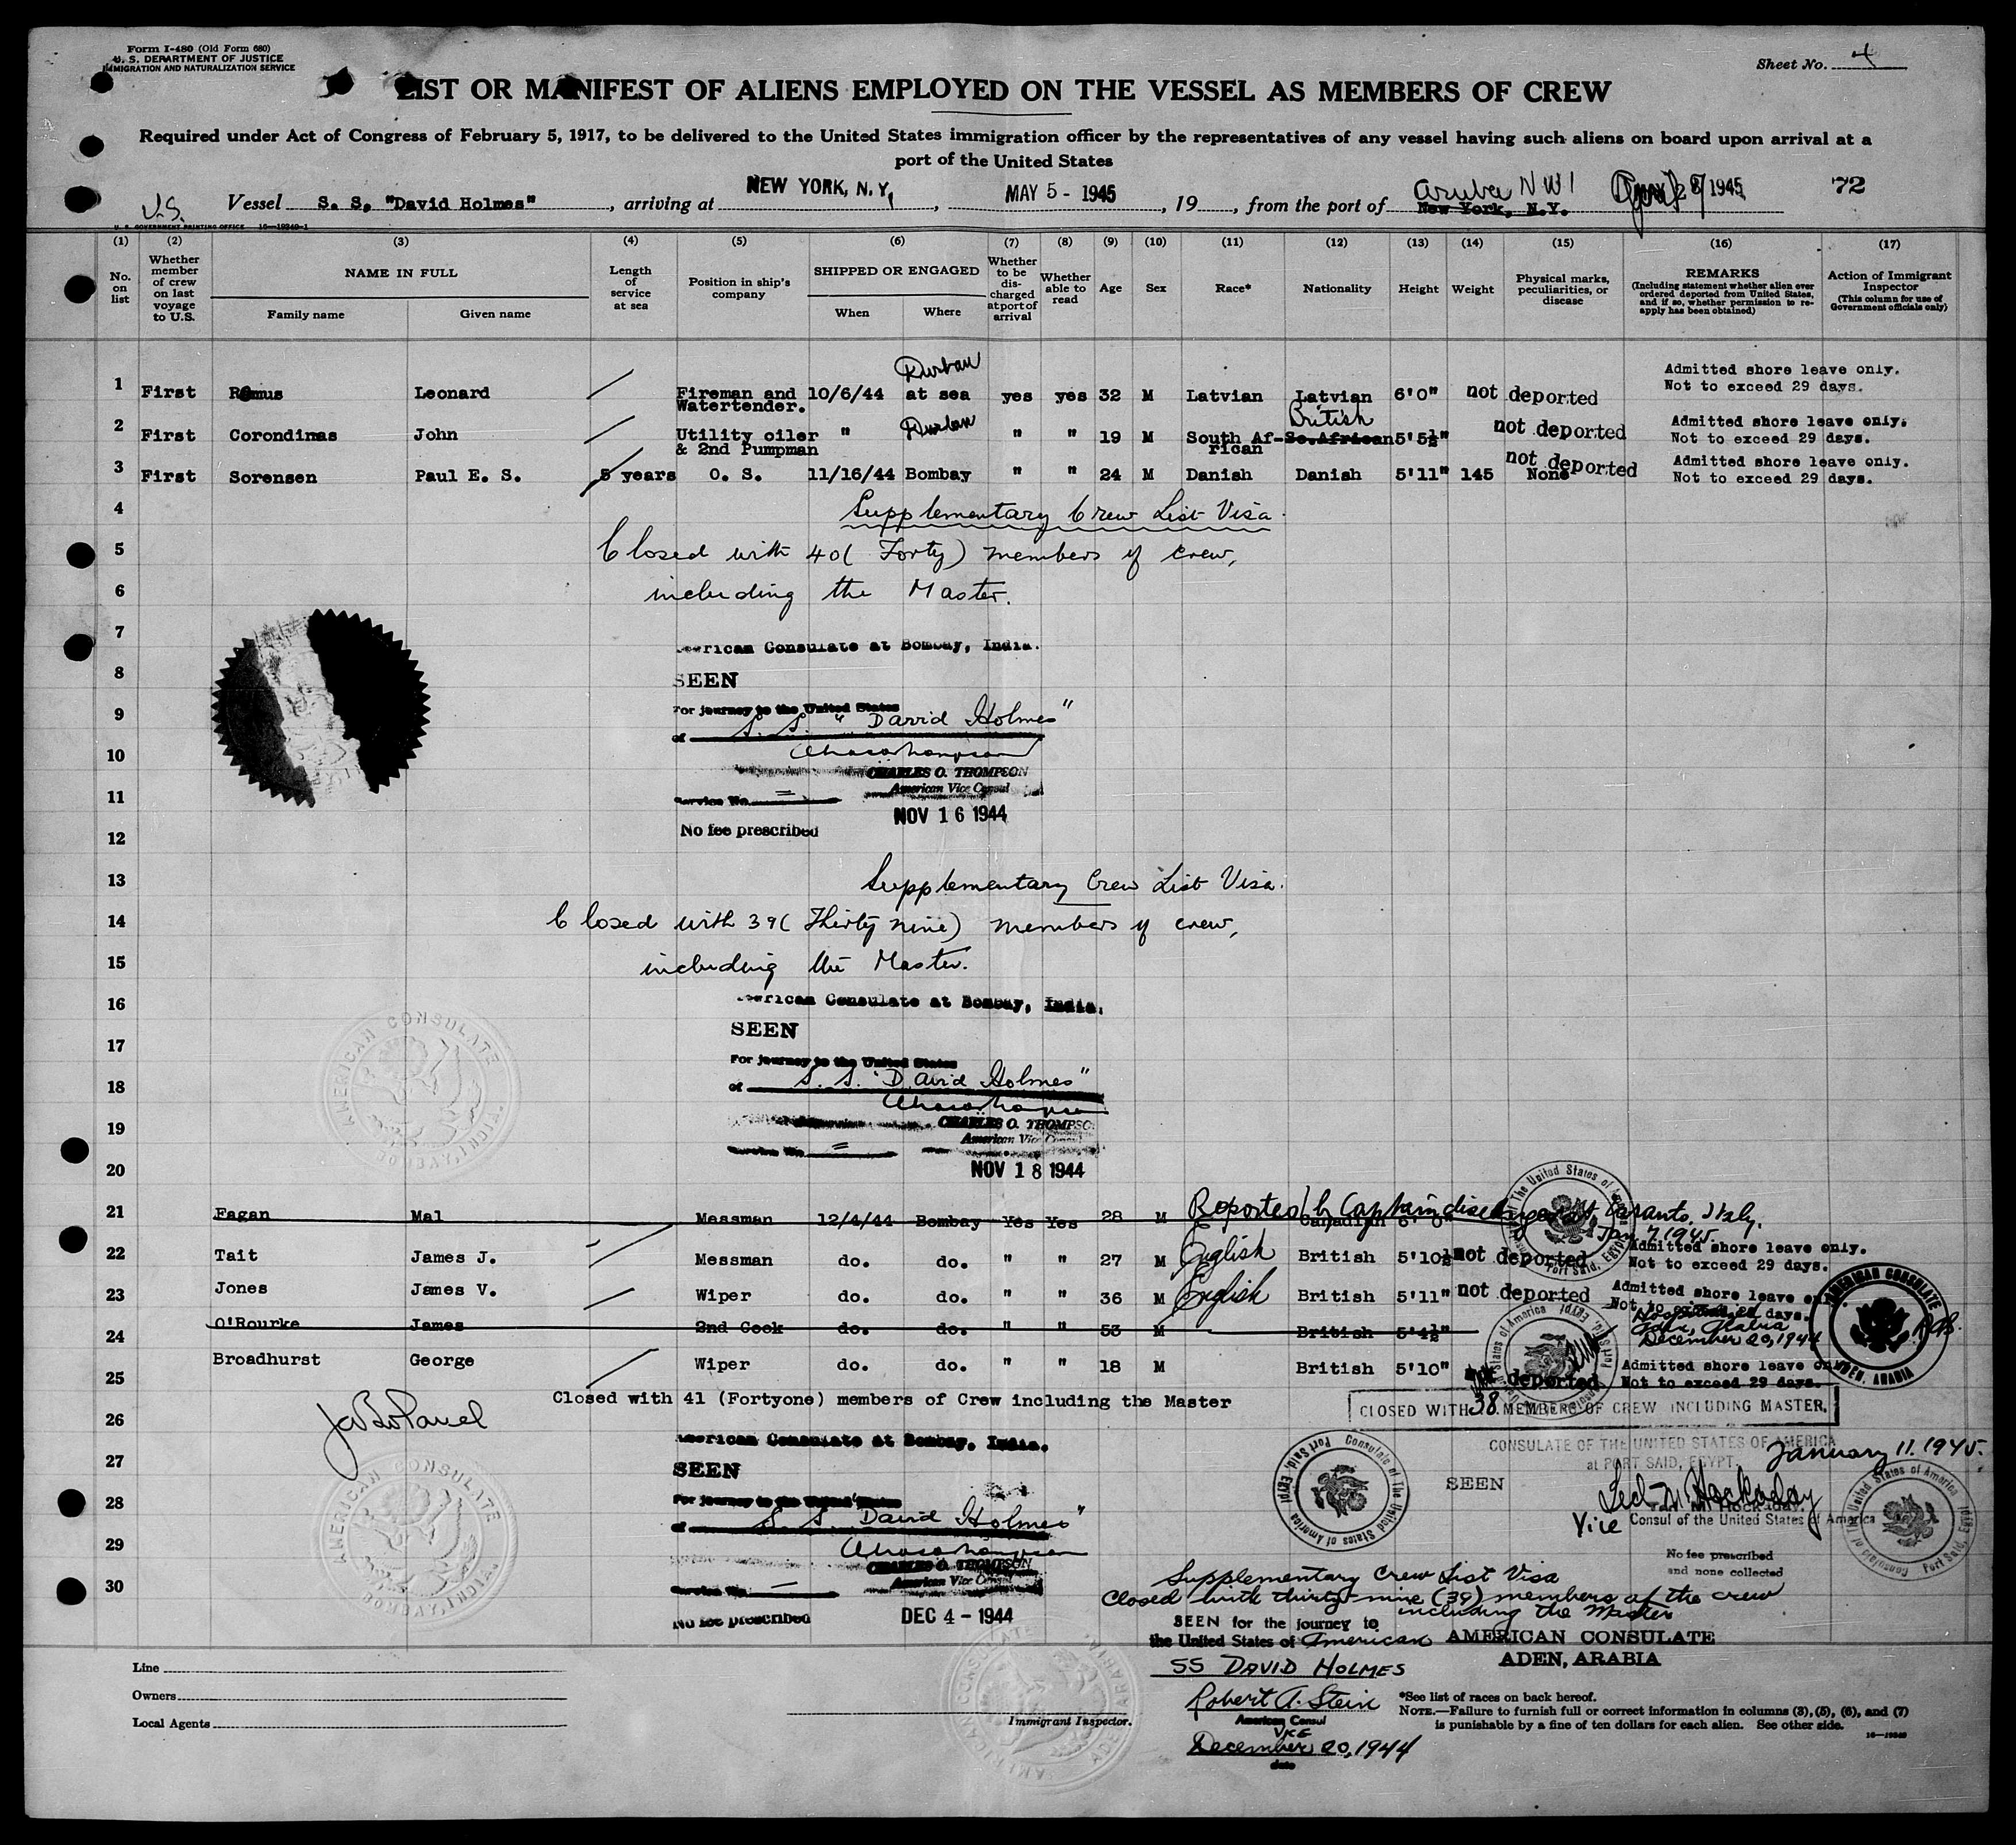 Form I-480 (Old Form 680)
U. S. DEPARTMENT OF JUSTICE
IMMIGRATION AND NATURALIZATION SERVICE
Sheet No. 4
LIST OR MANIFEST OF ALIENS EMPLOYED ON THE VESSEL AS MEMBERS OF CREW
Required under Act of Congress of February 5, 1917, to be delivered to the United States immigration officer by the representatives of any vessel having such aliens on board upon arrival at a
port of the United States
U.S. Vessel S. S. "David Holmes", arriving at NEW YORK, N. Y., MAY 5 - 1945, 19, from the port of Aruba NWI New York, N.Y. 1945 72
U. S. GOVERNMENT PRINTING OFFICE 16—19240-1
(1) (2) (3) (4) (5) (6) (7) (8) (9) (10) (11) (12) (13) (14) (15) (16) (17)
No. on list
Whether member of crew on last voyage to U.S.
NAME IN FULL
Family name
Given name
Length of service at sea
Position in ship's company
SHIPPED OR ENGAGED
When
Where
Whether to be discharged at port of arrival
Whether able to read
Age
Sex
Race*
Nationality
Height
Weight
Physical marks, peculiarities, or disease
REMARKS
(Including statement whether alien ever ordered deported from United States, and if so, whether permission to reapply has been obtained)
Action of Immigrant Inspector
(This column for use of Government officials only)
1 First Ramus Leonard Fireman and Watertender. 10/6/44 at sea Durban yes yes 32 M Latvian Latvian 6'0" not deported Admitted shore leave only. Not to exceed 29 days.
2 First Corondimas John Utility oiler & 2nd Pumpman " Durban " " 19 M South African So.African British 5'5½" not deported Admitted shore leave only. Not to exceed 29 days.
3 First Sorensen Paul E. S. 5 years O. S. 11/16/44 Bombay " " 24 M Danish Danish 5'11" 145 None not deported Admitted shore leave only. Not to exceed 29 days.
4 Supplementary Crew List Visa
5 Closed with 40 (Forty) members of crew,
6 including the Master.
7 American Consulate at Bombay, India.
8 SEEN
9 For journey to the United States
of S. S. "David Holmes"
10
CHARLES O. THOMPSON
11 American Vice Consul
Service No.
NOV 16 1944
12 No fee prescribed
13 Supplementary Crew List Visa.
14 Closed with 39 (Thirty nine) members of crew,
15 including the Master.
16 American Consulate at Bombay, India.
SEEN
17 For journey to the United States
18 of S. S. "David Holmes"
19 CHARLES O. THOMPSO
American Vice Consul
Service No.
20 NOV 18 1944
AMERICAN CONSULATE
21 Fagan Mal Messman 12/4/44 Bombay Yes Yes 28 M Canadian 6' 0" Reported by Captain Taranto, Italy, Jan 7, 1945.
22 Tait James J. Messman do. do. " " 27 M English British 5'10½ not deported Admitted shore leave only. Not to exceed 29 days.
23 Jones James V. Wiper do. do. " " 36 M English British 5'11" not deported Admitted shore leave only. Not to exceed 29 days.
24 O'Rourke James 2nd Cook do. do. " " 53 M British 5'4½" Hospitalized Aden, Arabia December 20, 1944
AMERICAN CONSULATE ADEN, ARABIA
25 Broadhurst George Wiper do. do. " " 18 M British 5'10" not deported Admitted shore leave only. Not to exceed 29 days.
Closed with 41 (Fortyone) members of Crew including the Master
26 CLOSED WITH 38 MEMBERS OF CREW INCLUDING MASTER.
American Consulate at Bombay, India.
CONSULATE OF THE UNITED STATES OF AMERICA
at PORT SAID, EGYPT, January 11, 1945.
27 SEEN
SEEN
28 For journey to the United States
of S. S. David Holmes"
Vice Consul of the United States of America
29 CHARLES O. THOMPSON
American Vice Consul
30 Service No.
No fee prescribed
DEC 4 - 1944
AMERICAN CONSULATE BOMBAY, INDIA
Consulate of the United States of America Port Said, Egypt
No fee prescribed
and none collected
Supplementary Crew List Visa
Closed with thirty-nine (39) members of the crew
including the Master
SEEN for the journey to
the United States of American
AMERICAN CONSULATE
ADEN, ARABIA
SS DAVID HOLMES
Robert A. Stein
American Consul
Vice
December 20, 1944
date
Line
Owners
Local Agents
Immigrant Inspector.
*See list of races on back hereof.
NOTE.—Failure to furnish full or correct information in columns (3), (5), (6), and (7)
is punishable by a fine of ten dollars for each alien. See other side.
16—19240